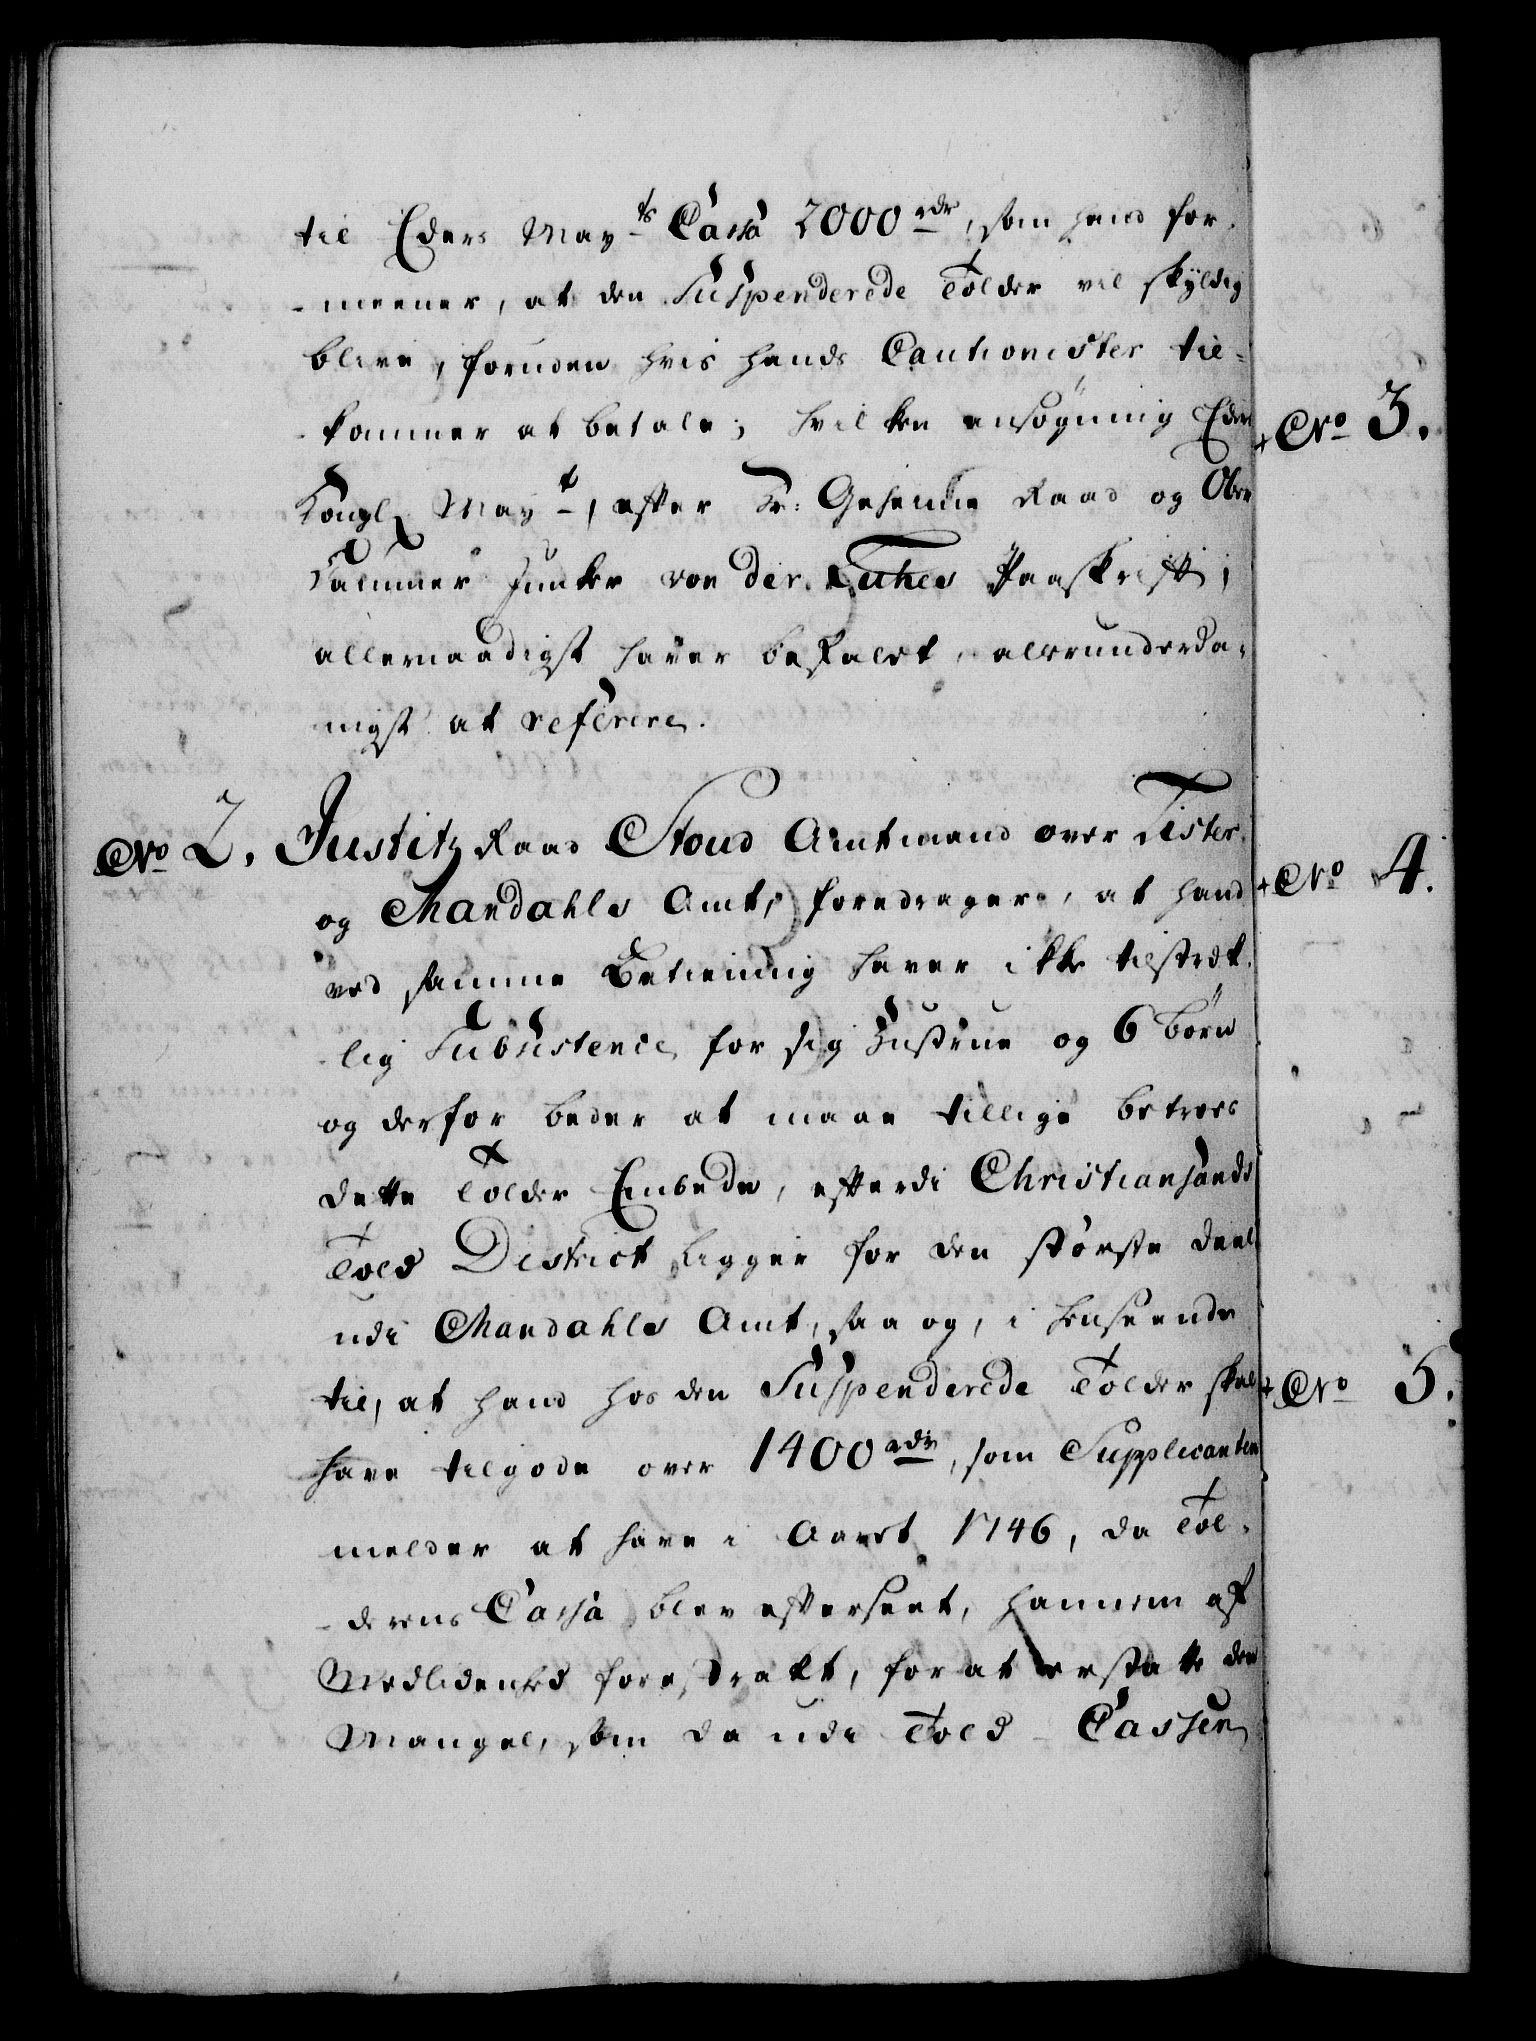 til Eders May.ts Cassa 2000 rdr, som hand for-
-meener, at den Suspenderede Tolder vil skyldig
blive, foruden hvis hands Cautionister til-
kommer at betale; hvilken ansøgning Eders
Kongl. May.t, efter Hr: Geheime Raad og Ober
Kammer Junker von der Lühes Paaskrift,
allernaadigst haver befalet, allerunderda-
nigst at referere.
No 2. Justitz Raad Stoud Amtmand over Lister
og Mandahls Amt, foredrager, at hand
ved samme Betiening haver ikke tilstrek-
-lig Subsistence for sig Hustrue og 6 børn
og derfor beder at maae tillige betroes
dette Tolder Embede, efterdi Christiansands
Told District ligger for den største deel
udi Mandahls Amt, saa og, i henseende
til, at hand hos den Suspenderede Tolder skal
have tilgode over 1400 rdr, som Supplicanten
melder at have i Aaret 1746, da Tol-
-derens Cassa blev efterseet, hannem af
Medlidenhed forestrakt, for at erstatte den
Mangel, som da udi Told-Cassen
+ No 3.
+ No 4.
+ No 5.